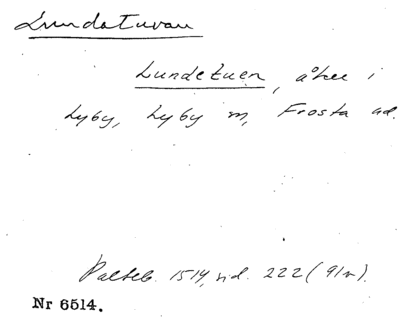 Lundatuvan
Lundetuen, åker i
Lyby, Lyby sn, Frosta hd.
Palteb. 1514, sid. 222 (91v).
Nr 6514.